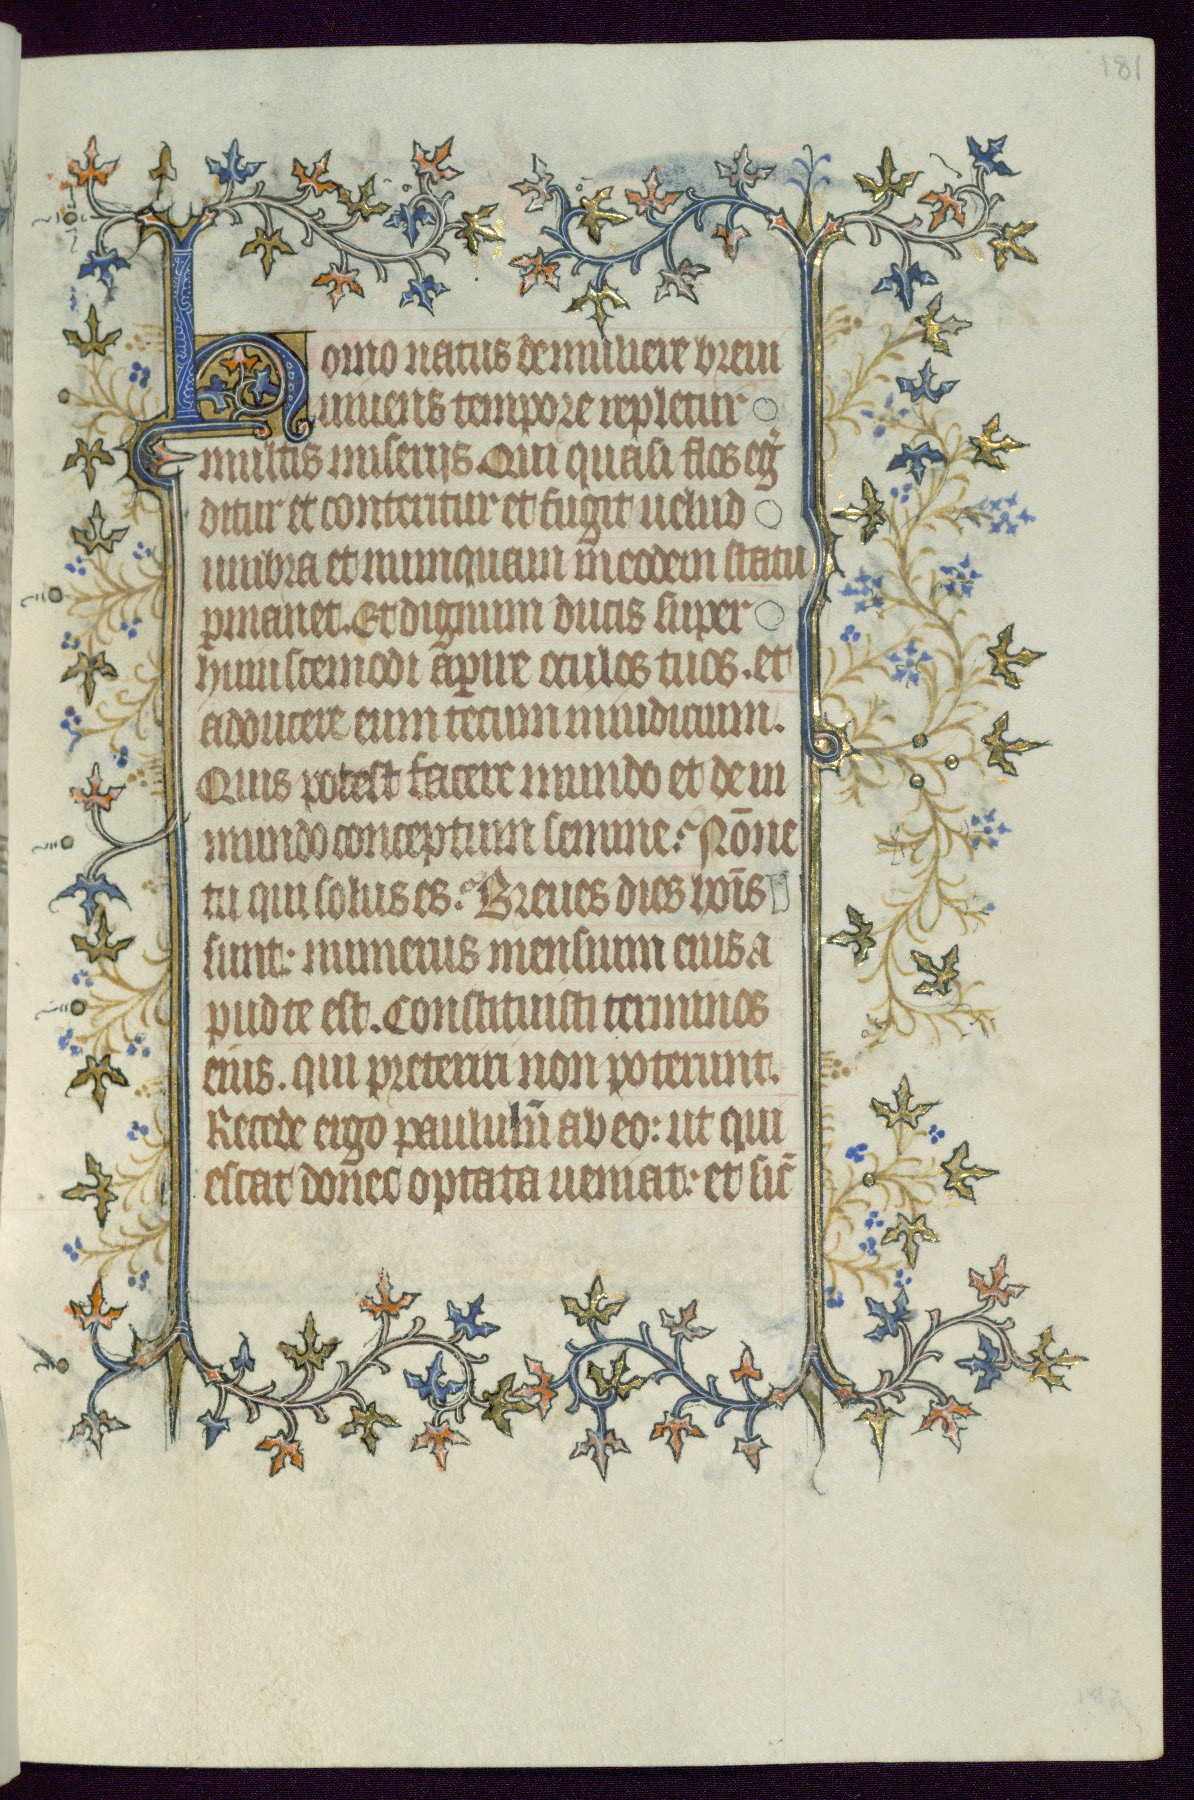 181
Homo natus de muliere breui
uiuens tempore repletur
multis miserijs. Qui quasi flos eg̾
ditur et conteritur et fugit uelud
umbra et nunquam in eodem statu
ꝑmanet. Et dignum ducis super
huiuscemodi aꝑire oculos tuos. et
adducere eum tecum in iudicium.
Quis potest facere mundo et de in
mundo conceptum semine? Nōne
tu qui solus es? Breues dies hoīs
sunt: numerus mensium eius a
pud te est. Constituisti terminos
eius. qui preteriri non poterunt.
Recede ergo paululū ab eo: ut qui
escat donec optata ueniat: et sic̄